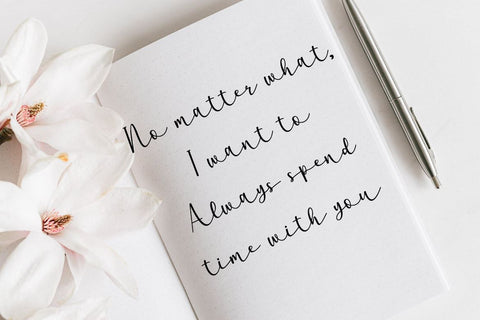 No matter what,
I want to
Always spend
time with you